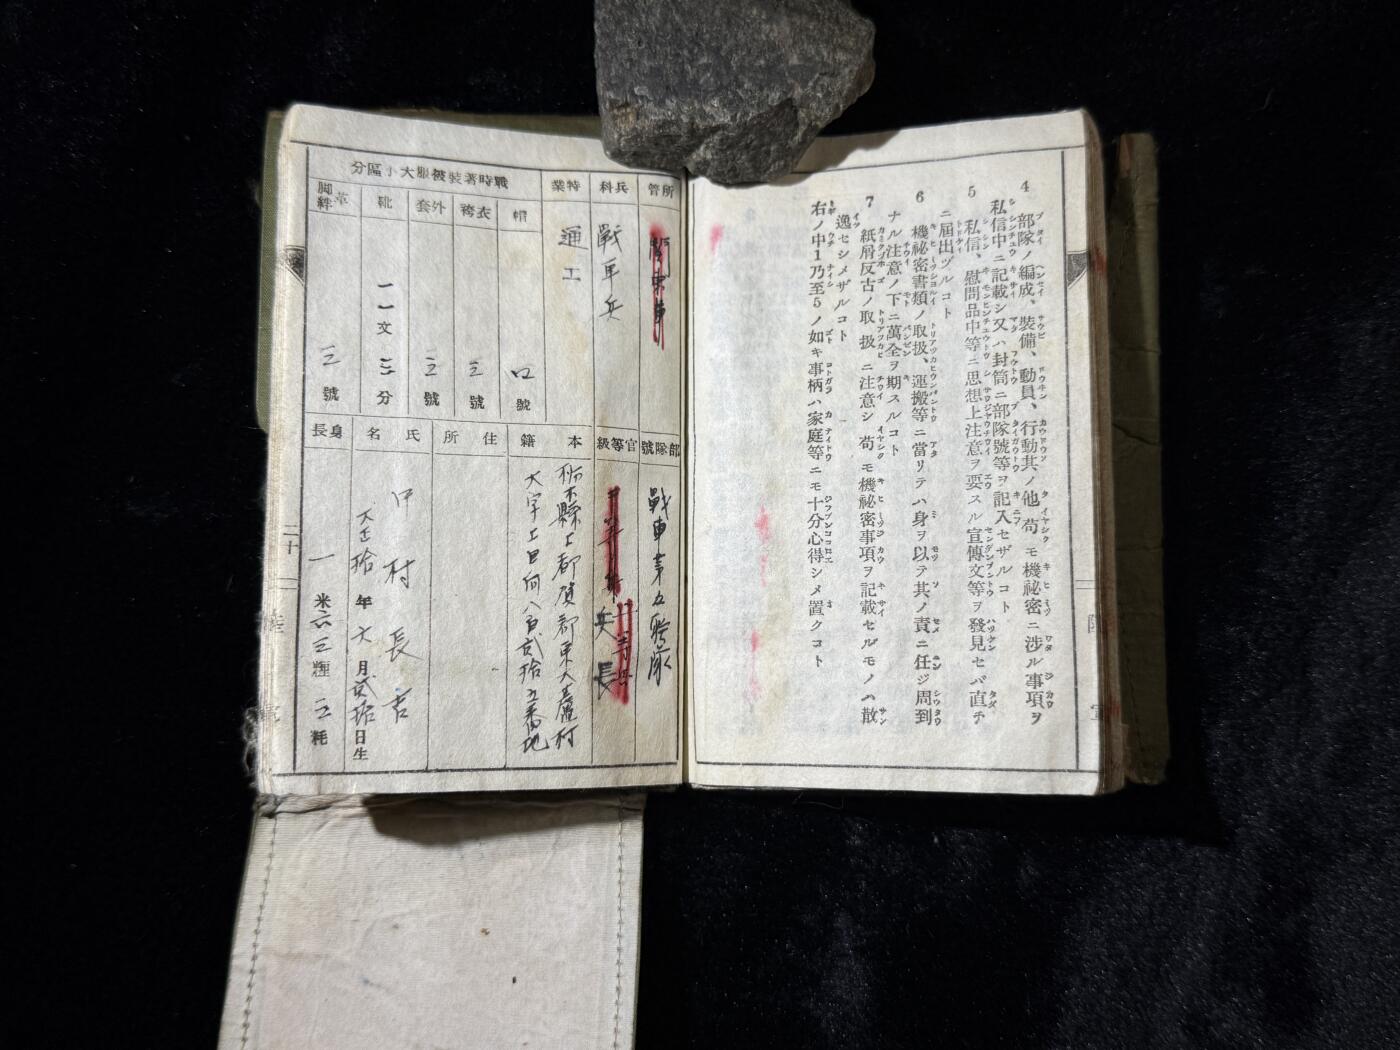 4 部隊ノ編成、裝備、動員、行動其ノ他苟モ機祕密ニ涉ル事項ヲ
私信中ニ記載シ又ハ封筒ニ部隊號等ヲ記入セザルコト
5 私信、慰問品中等ニ思想上注意ヲ要スル宣傳文等ヲ發見セバ直チ
ニ屆出ヅルコト
6 機祕密書類ノ取扱、運搬等ニ當リテハ身ヲ以テ其ノ責ニ任ジ周到
ナル注意ノ下ニ萬全ヲ期スルコト
7 紙屑反古ノ取扱ニ注意シ苟モ機祕密事項ヲ記載セルモノハ散
逸セシメザルコト
右ノ中1乃至5ノ如キ事柄ハ家庭等ニモ十分心得シメ置クコト
所管
關東軍
部隊號
戰車第五聯隊
兵科
戰車兵
官等級
上等兵
兵長
特業
通工
本籍
栃木縣上都賀郡東大蘆村
大字上日向八百貳拾五番地
戰時著裝被服大小區分
帽
號
衣袴
三號
外套
三號
靴
一一文三分
革脚絆
三號
住所
氏名
中村長吉
大正拾年六月貳拾日生
身長
一米六三糎五粍
二十